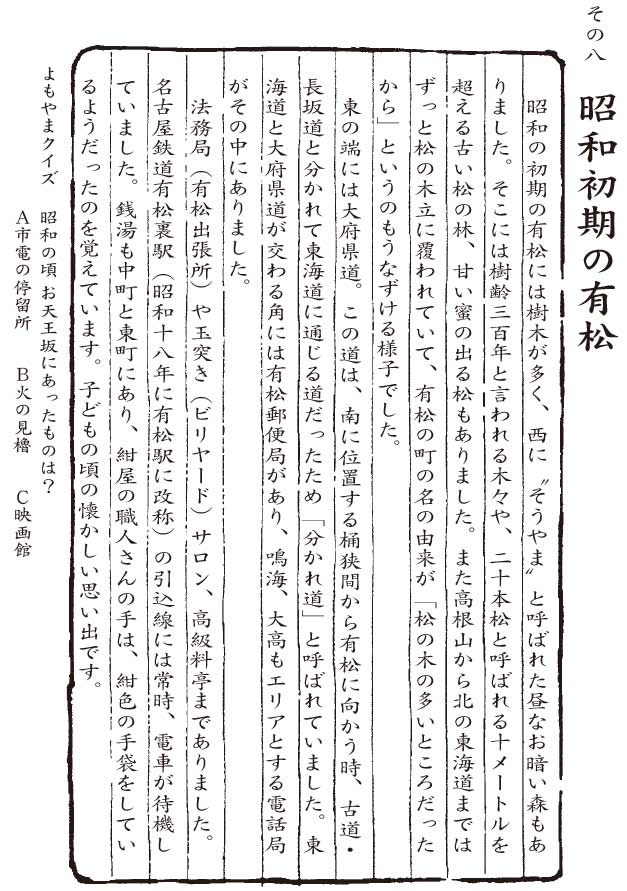 その八
昭和初期の有松
昭和の初期の有松には樹木が多く、西に〝そうやま〟と呼ばれた昼なお暗い森もあ
りました。そこには樹齢三百年と言われる木々や、二十本松と呼ばれる十メートルを
超える古い松の林、甘い蜜の出る松もありました。また高根山から北の東海道までは
ずっと松の木立に覆われていて、有松の町の名の由来が「松の木の多いところだった
から」というのもうなずける様子でした。
東の端には大府県道。この道は、南に位置する桶狭間から有松に向かう時、古道・
長坂道と分かれて東海道に通じる道だったため「分かれ道」と呼ばれていました。東
海道と大府県道が交わる角には有松郵便局があり、鳴海、大高もエリアとする電話局
がその中にありました。
法務局（有松出張所）や玉突き（ビリヤード）サロン、高級料亭までありました。
名古屋鉄道有松裏駅（昭和十八年に有松駅に改称）の引込線には常時、電車が待機し
ていました。銭湯も中町と東町にあり、紺屋の職人さんの手は、紺色の手袋をしてい
るようだったのを覚えています。子どもの頃の懐かしい思い出です。
よもやまクイズ 昭和の頃 お天王坂にあったものは？
A市電の停留所 B火の見櫓 C映画館